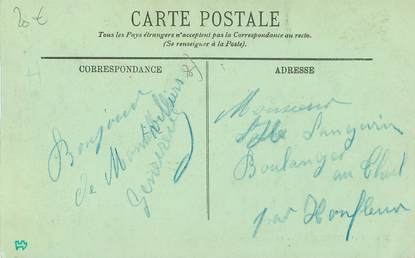 20 €
CARTE POSTALE
Tous les Pays étrangers n'acceptent pas la Correspondance au recto.
(Se renseigner à la Poste).
CORRESPONDANCE
Bonjour
de Montivilliers
ADRESSE
Monsieur
Langevin
Boulanger
par Honfleur